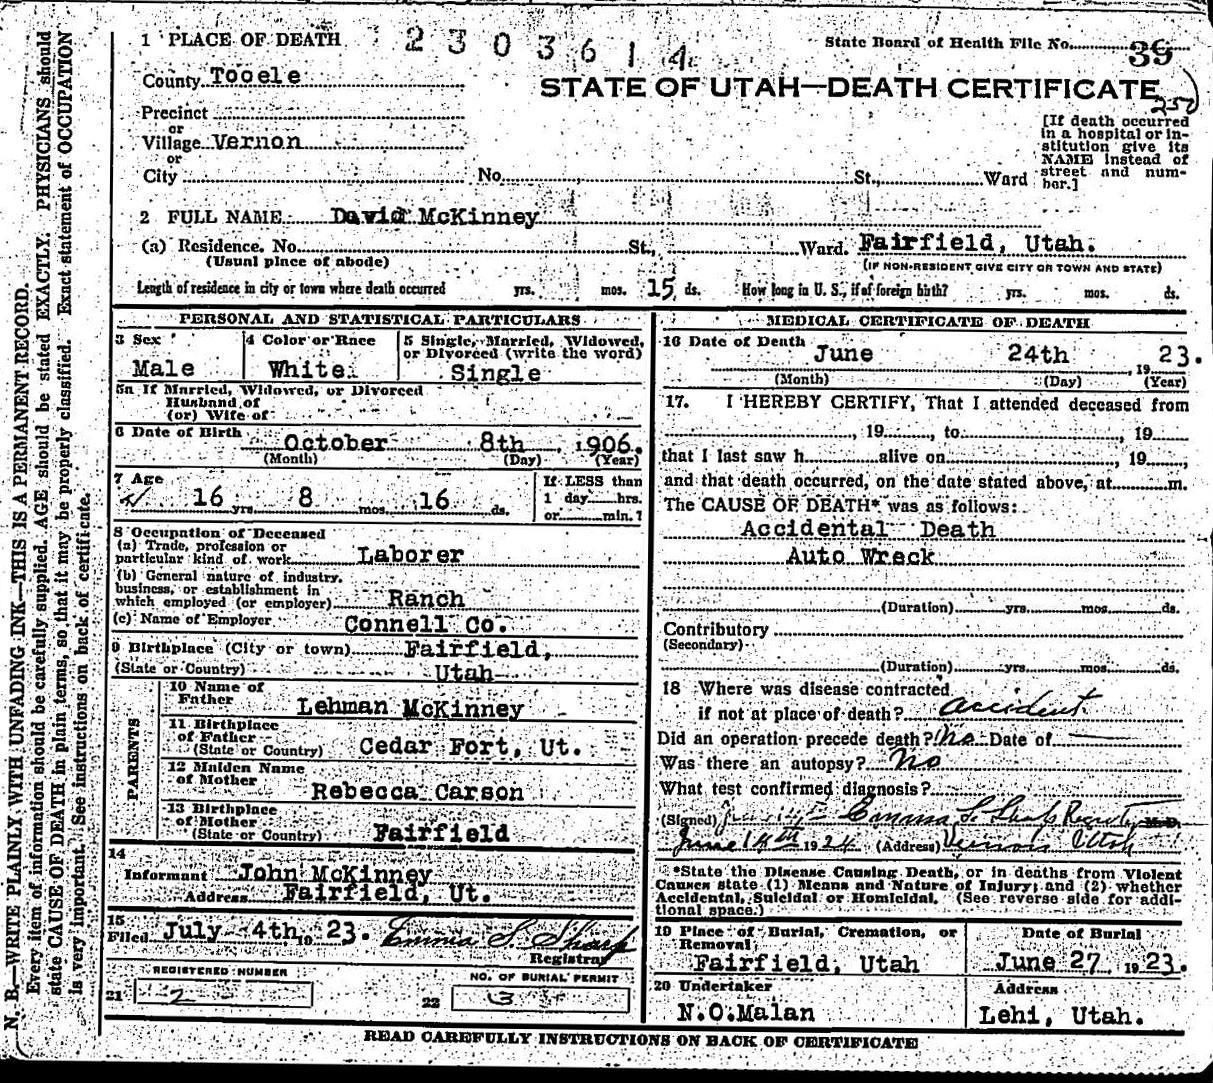 1 PLACE OF DEATH
2303614
State Board of Health File No. 39
County Tooele
STATE OF UTAH—DEATH CERTIFICATE
Precinct
or
Village Vernon
or
City No. St., Ward
[If death occurred
in a hospital or in-
stitution give its
NAME instead of
street and num-
ber.]
2 FULL NAME David McKinney
(a) Residence. No. St., Ward. Fairfield, Utah.
(Usual place of abode) (IF NON-RESIDENT GIVE CITY OR TOWN AND STATE)
Length of residence in city or town where death occurred yrs. mos. 15 ds. How long in U. S., if of foreign birth? yrs. mos. ds.
PERSONAL AND STATISTICAL PARTICULARS
3 Sex
Male
4 Color or Race
White
5 Single, Married, Widowed,
or Divorced (write the word)
Single
5a If Married, Widowed, or Divorced
Husband of
(or) Wife of
6 Date of Birth October 8th, 1906.
(Month) (Day) (Year)
7 Age
16 yrs. 8 mos. 16 ds.
If LESS than
1 day hrs.
or min.?
8 Occupation of Deceased
(a) Trade, profession or
particular kind of work Laborer
(b) General nature of industry,
business, or establishment in
which employed (or employer) Ranch
(c) Name of Employer Connell Co.
9 Birthplace (City or town) Fairfield,
(State or Country) Utah
PARENTS
10 Name of
Father Lehman McKinney
11 Birthplace
of Father
(State or Country) Cedar Fort, Ut.
12 Maiden Name
of Mother Rebecca Carson
13 Birthplace
of Mother
(State or Country) Fairfield
14
Informant John McKinney
Address Fairfield, Ut.
15
Filed July 4th 1923. Emma S. Sharp
Registrar
REGISTERED NUMBER
21 2
NO. OF BURIAL PERMIT
22 3
MEDICAL CERTIFICATE OF DEATH
16 Date of Death June 24th, 1923.
(Month) (Day) (Year)
17. I HEREBY CERTIFY, That I attended deceased from
, 19 , to , 19
that I last saw h alive on , 19 ,
and that death occurred, on the date stated above, at m.
The CAUSE OF DEATH* was as follows:
Accidental Death
Auto Wreck
(Duration) yrs. mos. ds.
Contributory
(Secondary)
(Duration) yrs. mos. ds.
18 Where was disease contracted
if not at place of death? accident.
Did an operation precede death? No Date of
Was there an autopsy? No
What test confirmed diagnosis?
(Signed) Emma S. Sharp M.D.
June 1924 (Address) Vernon Utah
*State the Disease Causing Death, or in deaths from Violent
Causes state (1) Means and Nature of Injury; and (2) whether
Accidental, Suicidal or Homicidal. (See reverse side for addi-
tional space.)
19 Place of Burial, Cremation, or
Removal
Fairfield, Utah
Date of Burial
June 27, 1923.
20 Undertaker
N.O.Malan
Address
Lehi, Utah.
READ CAREFULLY INSTRUCTIONS ON BACK OF CERTIFICATE
N. B.—WRITE PLAINLY WITH UNFADING INK—THIS IS A PERMANENT RECORD.
Every item of information should be carefully supplied. AGE should be stated EXACTLY. PHYSICIANS should
state CAUSE OF DEATH in plain terms, so that it may be properly classified. Exact statement of OCCUPATION
is very important. See instructions on back of certificate.